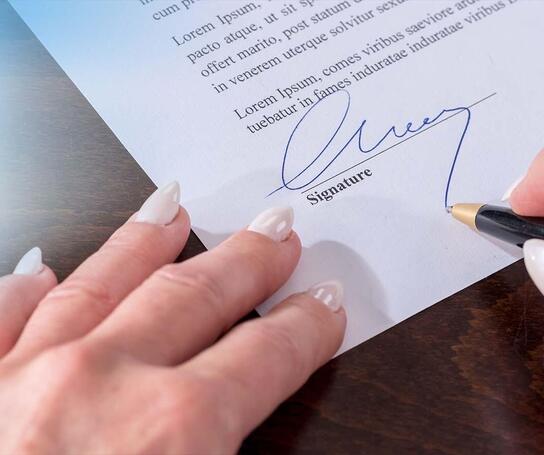 cum p
Lorem Ipsum,
pacto atque, ut sit sp
offert marito, post statum d
in venerem uterque solvitur sexu
Lorem Ipsum, comes viribus saeviore ard
tuebatur in fames induratae induratae viribus
Signature